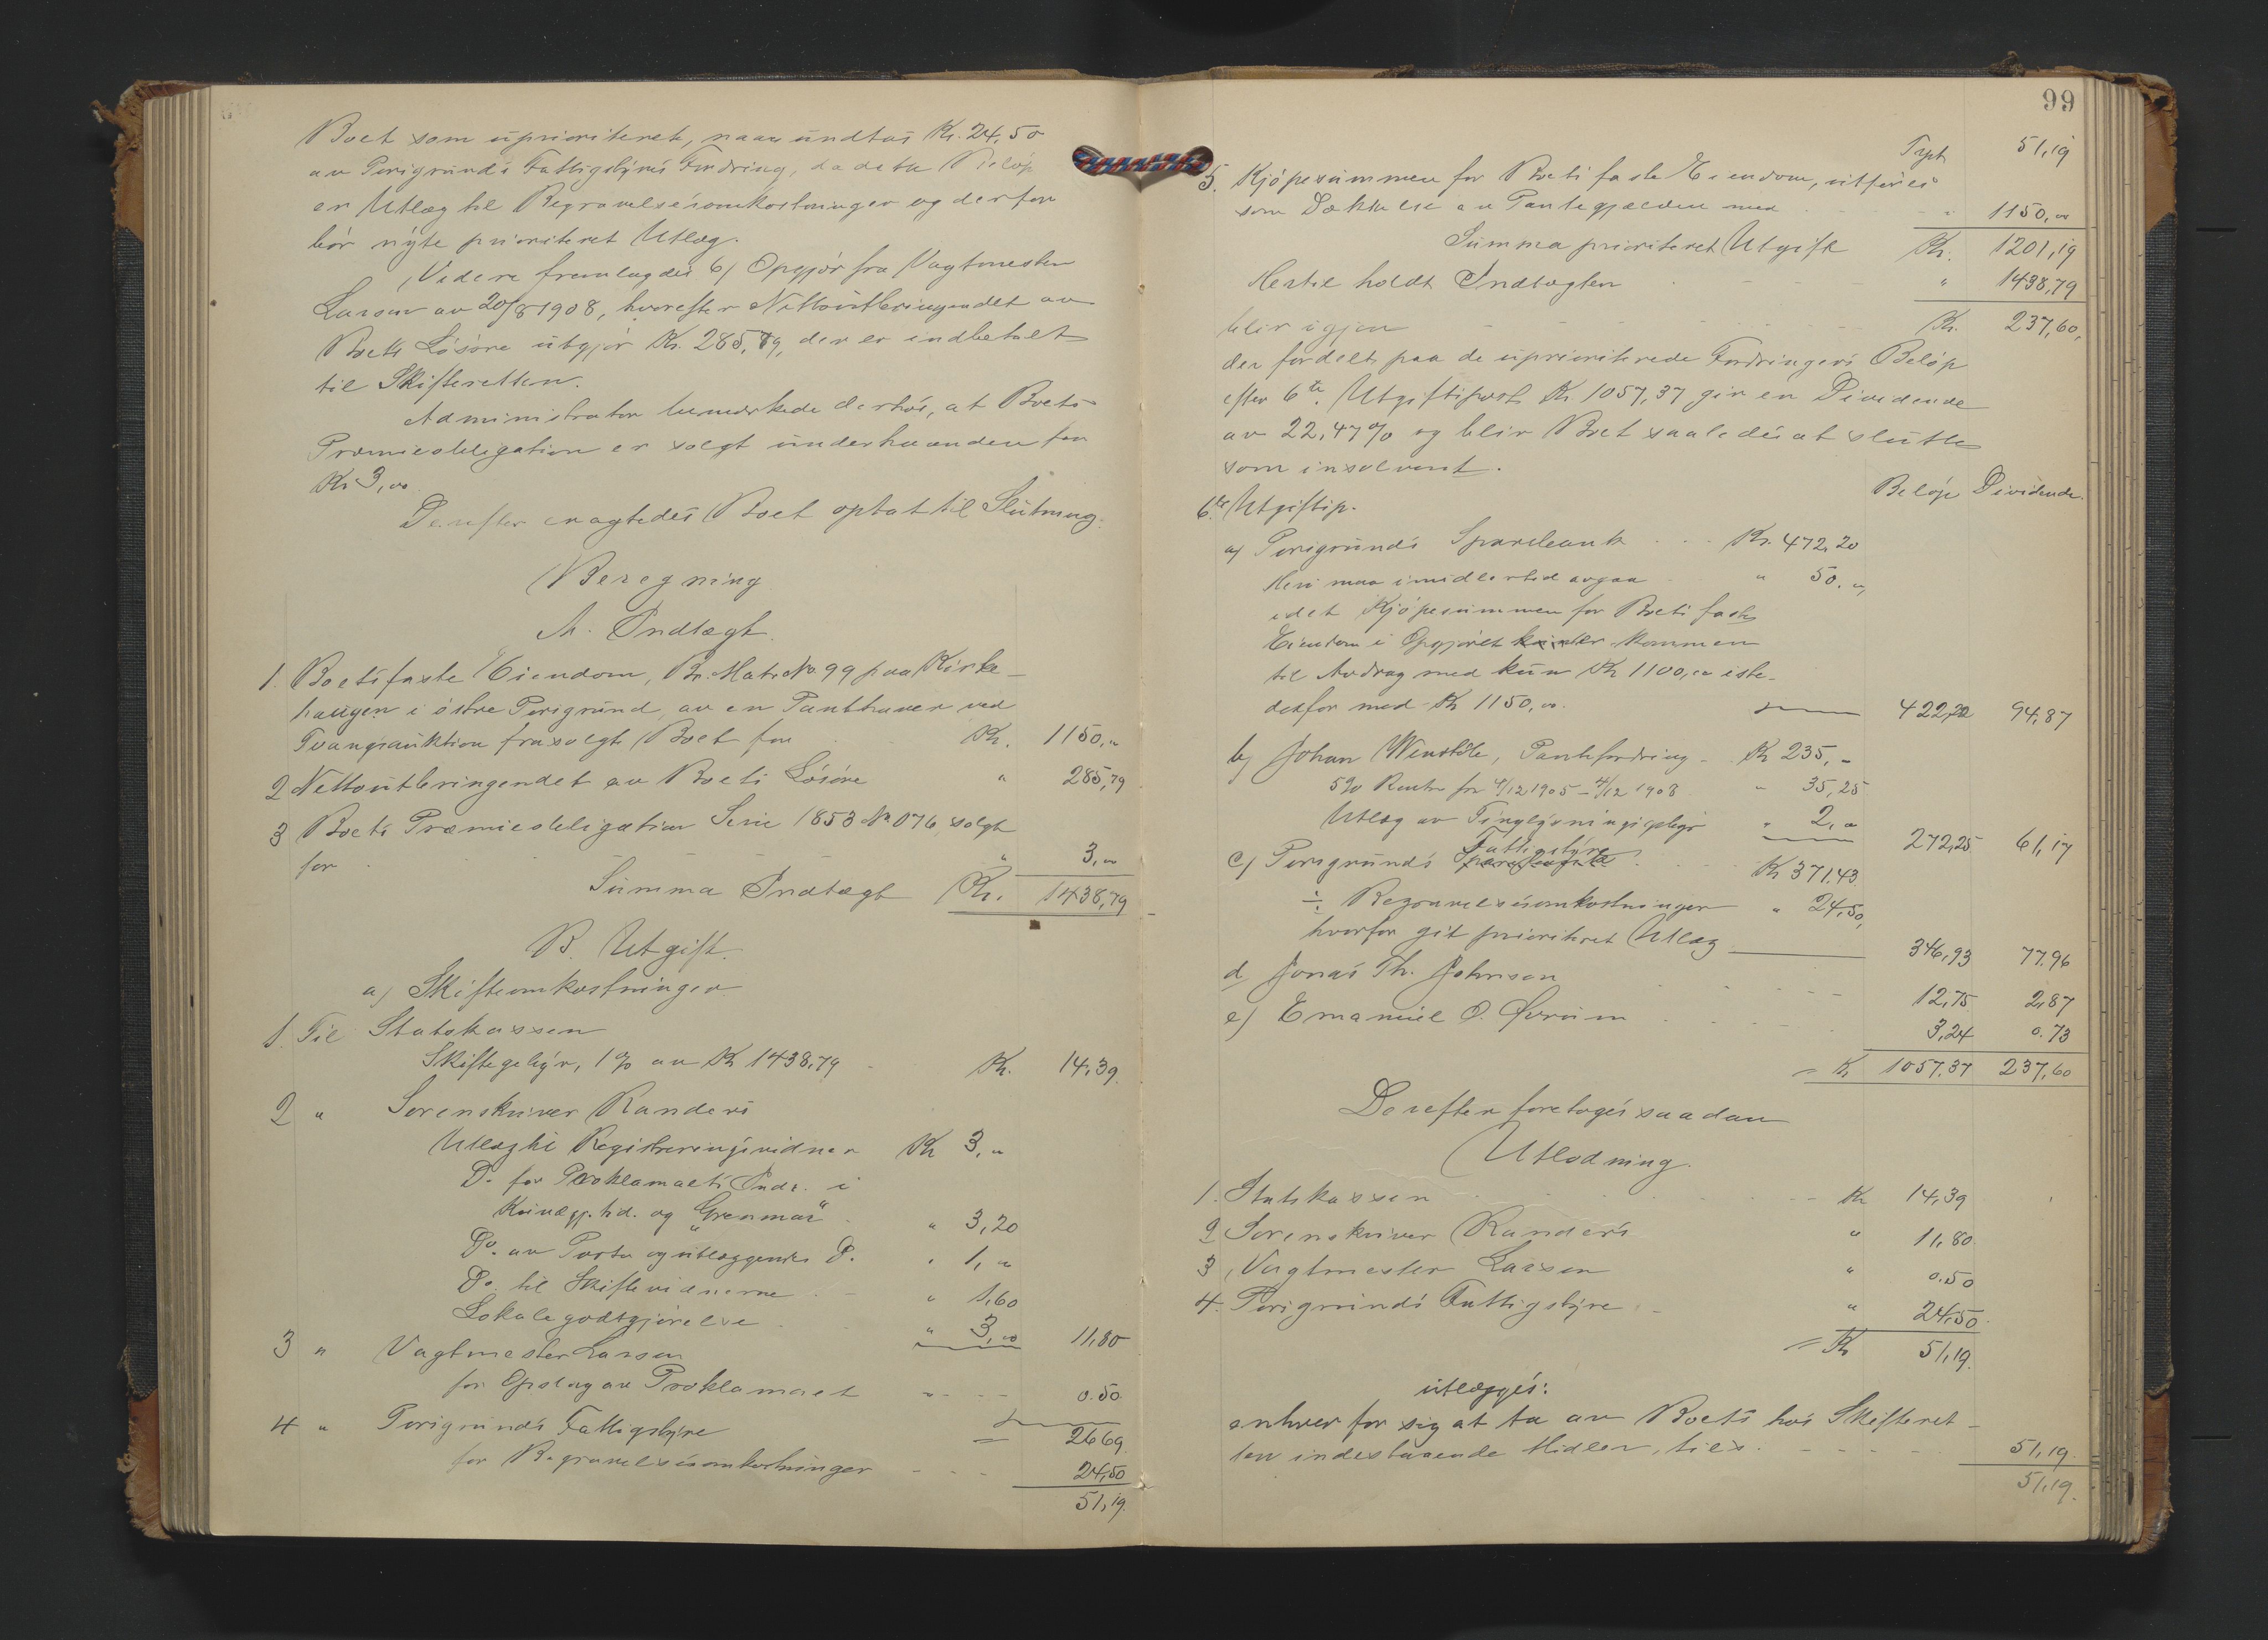 Boet som uprioriteret, naar undtas Kr. 24,50
av Porsgrunds Fattigstyres Fordring, da dette Beløp
er Utlæg til Begravelsesomkostninger og derfor
bør nyte prioritert Utlæg.
Videre fremlagdes 6) Opgjør fra Vagtmester
Larsen av 20/8 1908, hvorefter Nettoutbringendet av
Boets Løsøre utgjør Kr. 285,79, der er indbetalt
til Skifteretten.
Administrator bemærkede derhos, at Boets
Præmieobligation er solgt underhaanden for
Kr 3,00
Derefter eragtedes Boet optat til Slutning.
Beregning
A. Indtægt.
1. Boets faste Eiendom, Br. Matr. No 99 paa Kirke-
haugen i østre Porsgrund, av en Panthaver ved
Tvangsauktion frasolgt Boet for Kr. 1150,"
2 Nettoutbringendet av Boets Løsøre " 285,79
3 Boets Præmieobligation Serie 1853 No 076, solgt
for " 3,00
Summa Indtægt Kr. 1438,79
B. Utgift.
a) Skifteomkostninger
1. Til Statskassen
Skiftegebyr, 1% av Kr 1438,79 Kr. 14,39.
2 " Sorenskriver Randers
Utlæg til Registreringsvidner Kr 3,"
Do for Proklamaets Indr. i
Kundgj.tid. og "Grenmar" " 3,20
Do. av Porto og utlæggendes D. " 1,"
Do. til Skiftevidnerne " 1,60
Lokalegodtgjørelse " 3,00 11,80
3 " Vagtmester Larsen
for Opslag av Proklamaet " 0.50.
4 " Porsgrunds Fattigstyre = 26,69.
for Begravelsesomkostninger 24,50
51,19.
99
Trpt 51,19
5. Kjøpesummen for Boets faste Eiendom, utføres
som Dækkelse av Pantegjælden med " 1150,00
Summa prioriteret Utgift Kr. 1201,19
Hertil holdt Indtægten " 1438,79
blir igjen Kr. 237,60,
der fordelt paa de uprioriterede Fordringers Beløp
efter 6te Utgiftspost Kr. 1057,37 gir en Dividende
av 22,47% og blir Boet saaledes at slutte
som insolvent.
Beløp Dividende.
6te Utgiftsp.
a) Porsgrunds Sparebank Kr. 472,20
Heri maa imidlertid avgaa " 50.",
idet Kjøpesummen for Boets faste
Eiendom i Opgjøret er kommen
til Avdrag med kun Kr 1100,00 iste-
detfor med Kr 1150,00. 422,20 94,87
b) Johan Wenstøle, Pantefordring Kr 235,"
5% Renter fra 4/12 1905 - 4/12 1908 " 35,25
Utlæg av Tinglysningsgebyr " 2,"
272,25 61,17
c) Porsgrunds Fattigstyre Kr 371.43
÷ Begravelsesomkostninger " 24,50,
hvorfor git prioriteret Utlæg 346,93 77.96
d Jonas Th. Johnsen 12,75 2,87
e) Emanuel O. Øvrum 3,24 0.73
= Kr 1057.37 237,60
Derefter foretoges saadan
Utlodning.
1. Statskassen Kr 14,39
2 Sorenskriver Randers " 11,80.
3 Vagtmester Larsen " 0.50
4. Porsgrunds Fattigstyre " 24,50.
= Kr 51,19.
utlægges:
enhver for sig at ta av Boets hos Skifteret-
ten indestaaende Midler, tils. 51,19.
51,19.